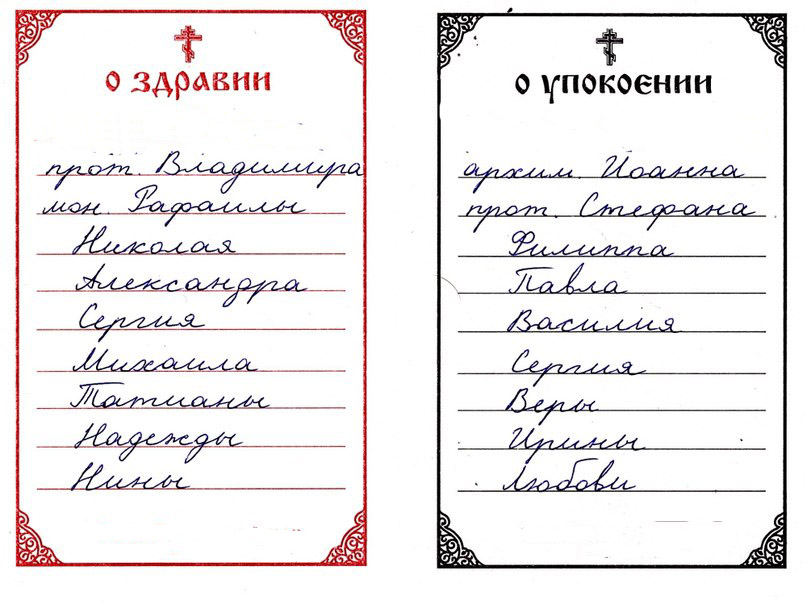 О ЗДРАВИИ
прот. Владимира
мон. Рафаилы
Николая
Александра
Сергия
Михаила
Татианы
Надежды
Нины
О УПОКОЕНИИ
архим. Иоанна
прот. Стефана
Филиппа
Павла
Василия
Сергия
Веры
Ирины
Любови